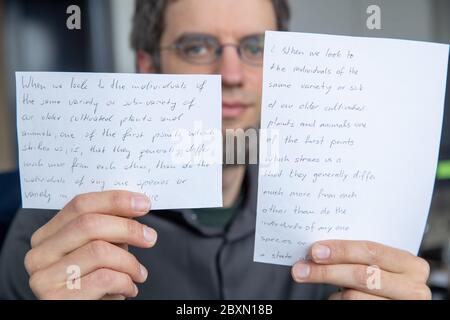 When we look to the individuals of
the same variety or sub-variety of
our older cultivated plants and
animals, one of the first points which
strikes us, is, that they generally differ
much more from each other, than do the
individuals of any one species or
variety in
When we look to
the individuals of the
same variety or sub
of our older cultivated
plants and animals one
of the first points
which strikes us is
that they generally differ
much more from each
other than do the
individuals of any one
species or
a state
alamy
Image ID: 2BXN18B
www.alamy.com